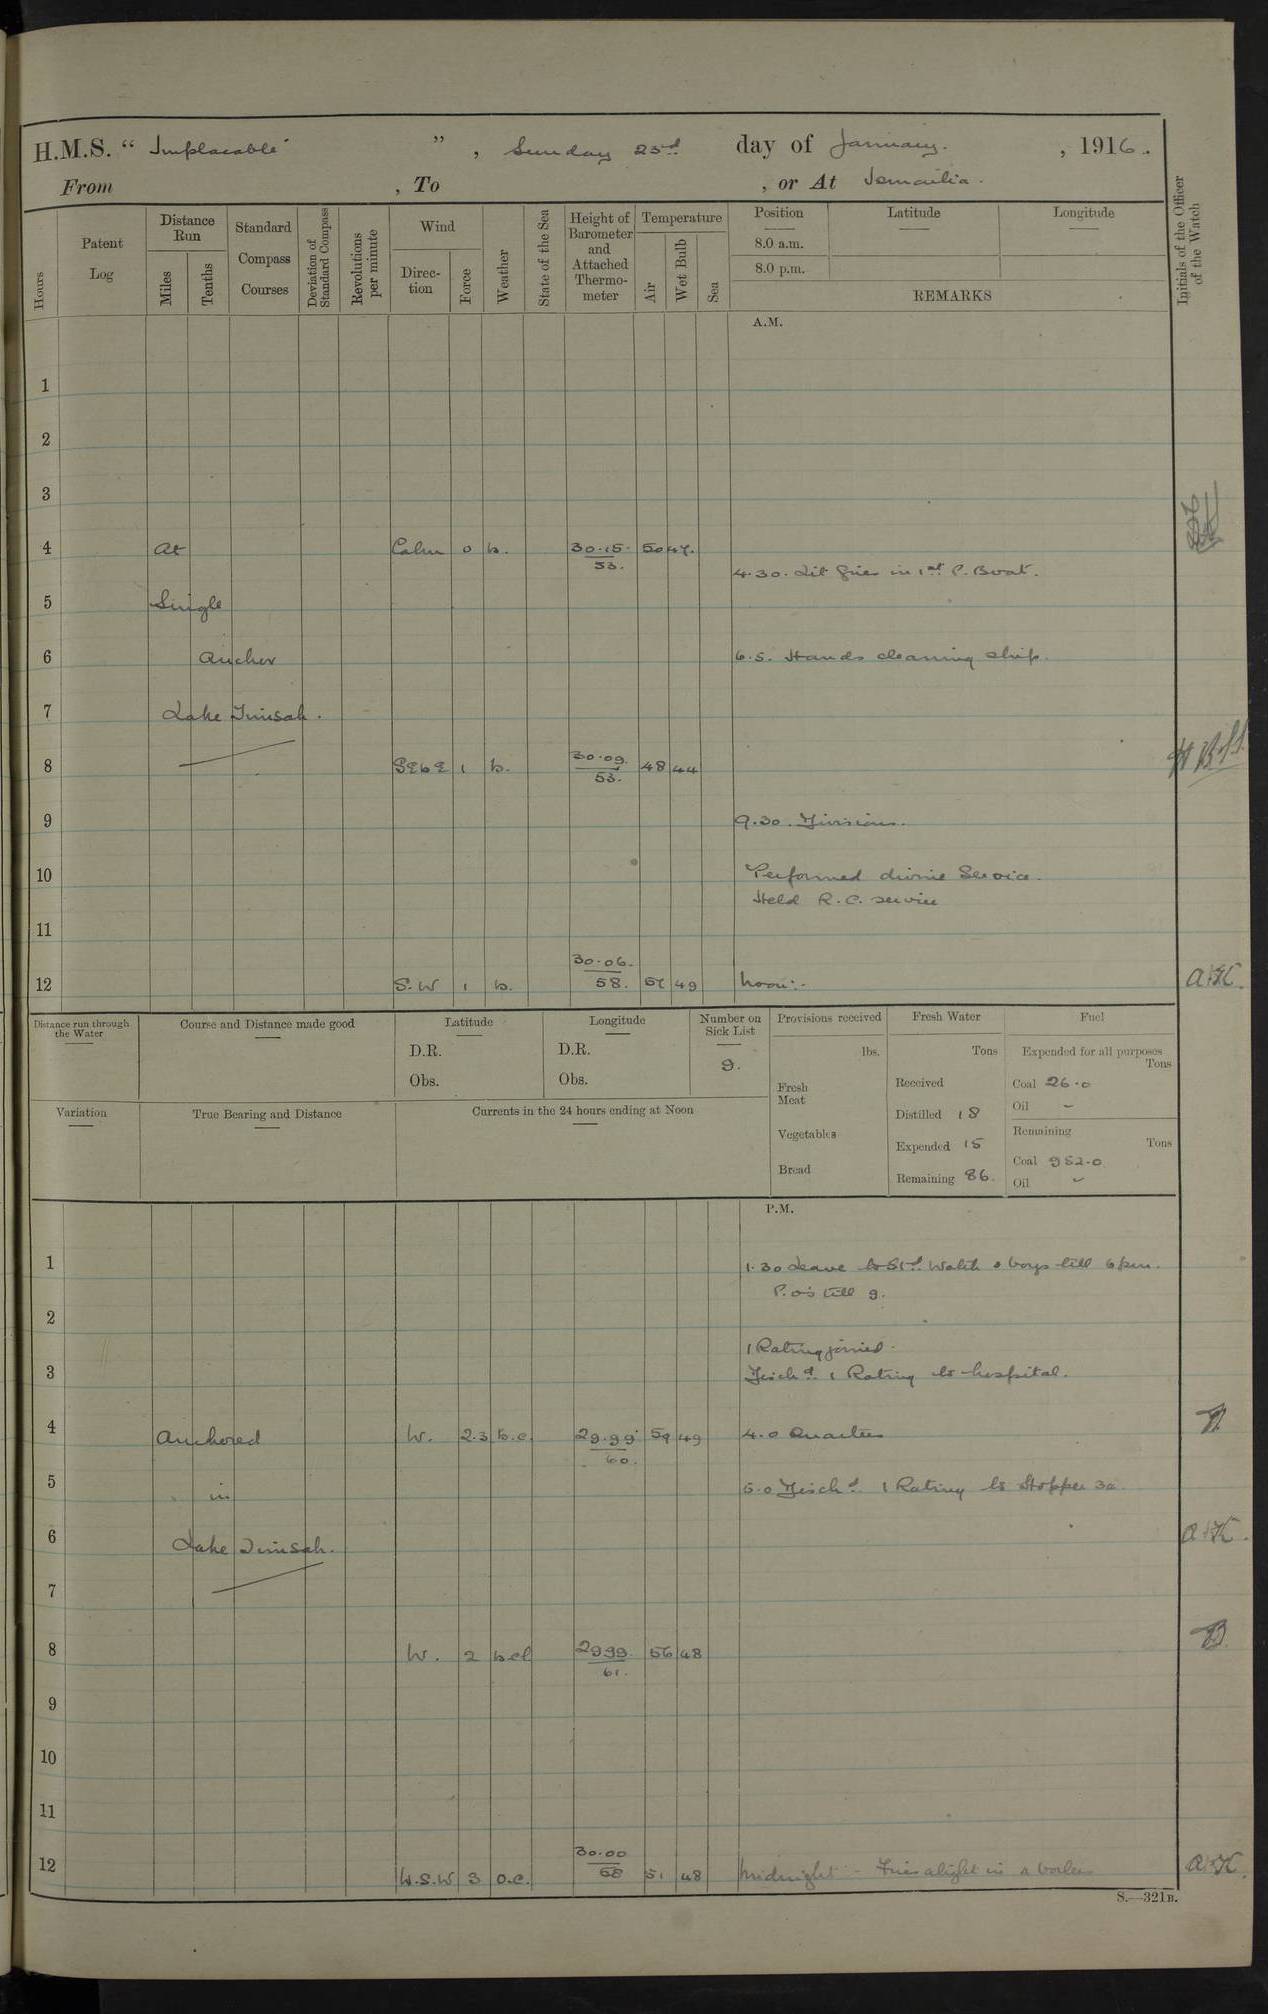 H.M.S. “ Implacable ” , Sunday 23rd day of January. , 1916.
From , To , or At Ismailia.
Hours
Patent Log
Distance Run
Miles
Tenths
Standard Compass Courses
Deviation of Standard Compass
Revolutions per minute
Wind
Direc-tion
Force
Weather
State of the Sea
Height of Barometer and Attached Thermo-meter
Temperature
Air
Wet Bulb
Sea
Position
8.0 a.m.
8.0 p.m.
Latitude
Longitude
REMARKS
Initials of the Officer of the Watch
A.M.
1
2
3
4 At Calm 0 b. 30.15. 53. 50 47.
4.30. Lit fires in 1st P. Boat.
5 Single
6 Anchor 6.5. Hands cleaning ship.
7 Lake Timsah.
8 SEbE 1 b. 30.09. 53. 48 44
9 9.30. Divisions.
10 Performed divine Service.
Held R.C. service
11
12 S.W 1 b. 30.06. 58. 57 49 Noon:- A.K.
Distance run through the Water
Course and Distance made good
Latitude
D.R.
Obs.
Longitude
D.R.
Obs.
Number on Sick List
9.
Provisions received
lbs.
Fresh Meat
Vegetables
Bread
Fresh Water
Tons
Received
Distilled 18
Expended 15
Remaining 86.
Fuel
Expended for all purposes
Tons
Coal 26.0
Oil -
Remaining
Tons
Coal 952.0
Oil -
Variation
True Bearing and Distance
Currents in the 24 hours ending at Noon
P.M.
1 1.30 Leave to Std. Watch & boys till 6 pm.
P.O's till 9.
2
1 Rating joined.
3 Disch'd. 1 Rating to hospital.
4 Anchored W. 2.3 b.c. 29.99. 60. 59 49 4.0 Quarters
5 in 5.0 Disch'd. 1 Rating to Stopper 3a.
6 Lake Timsah. A.K.
7
8 W. 2 b.cl 29.99. 61. 56 48
9
10
11
12 W.S.W 3 o.c. 30.00 58 51 48 Midnight - Fires alight in a boiler A.K.
S.—321B.